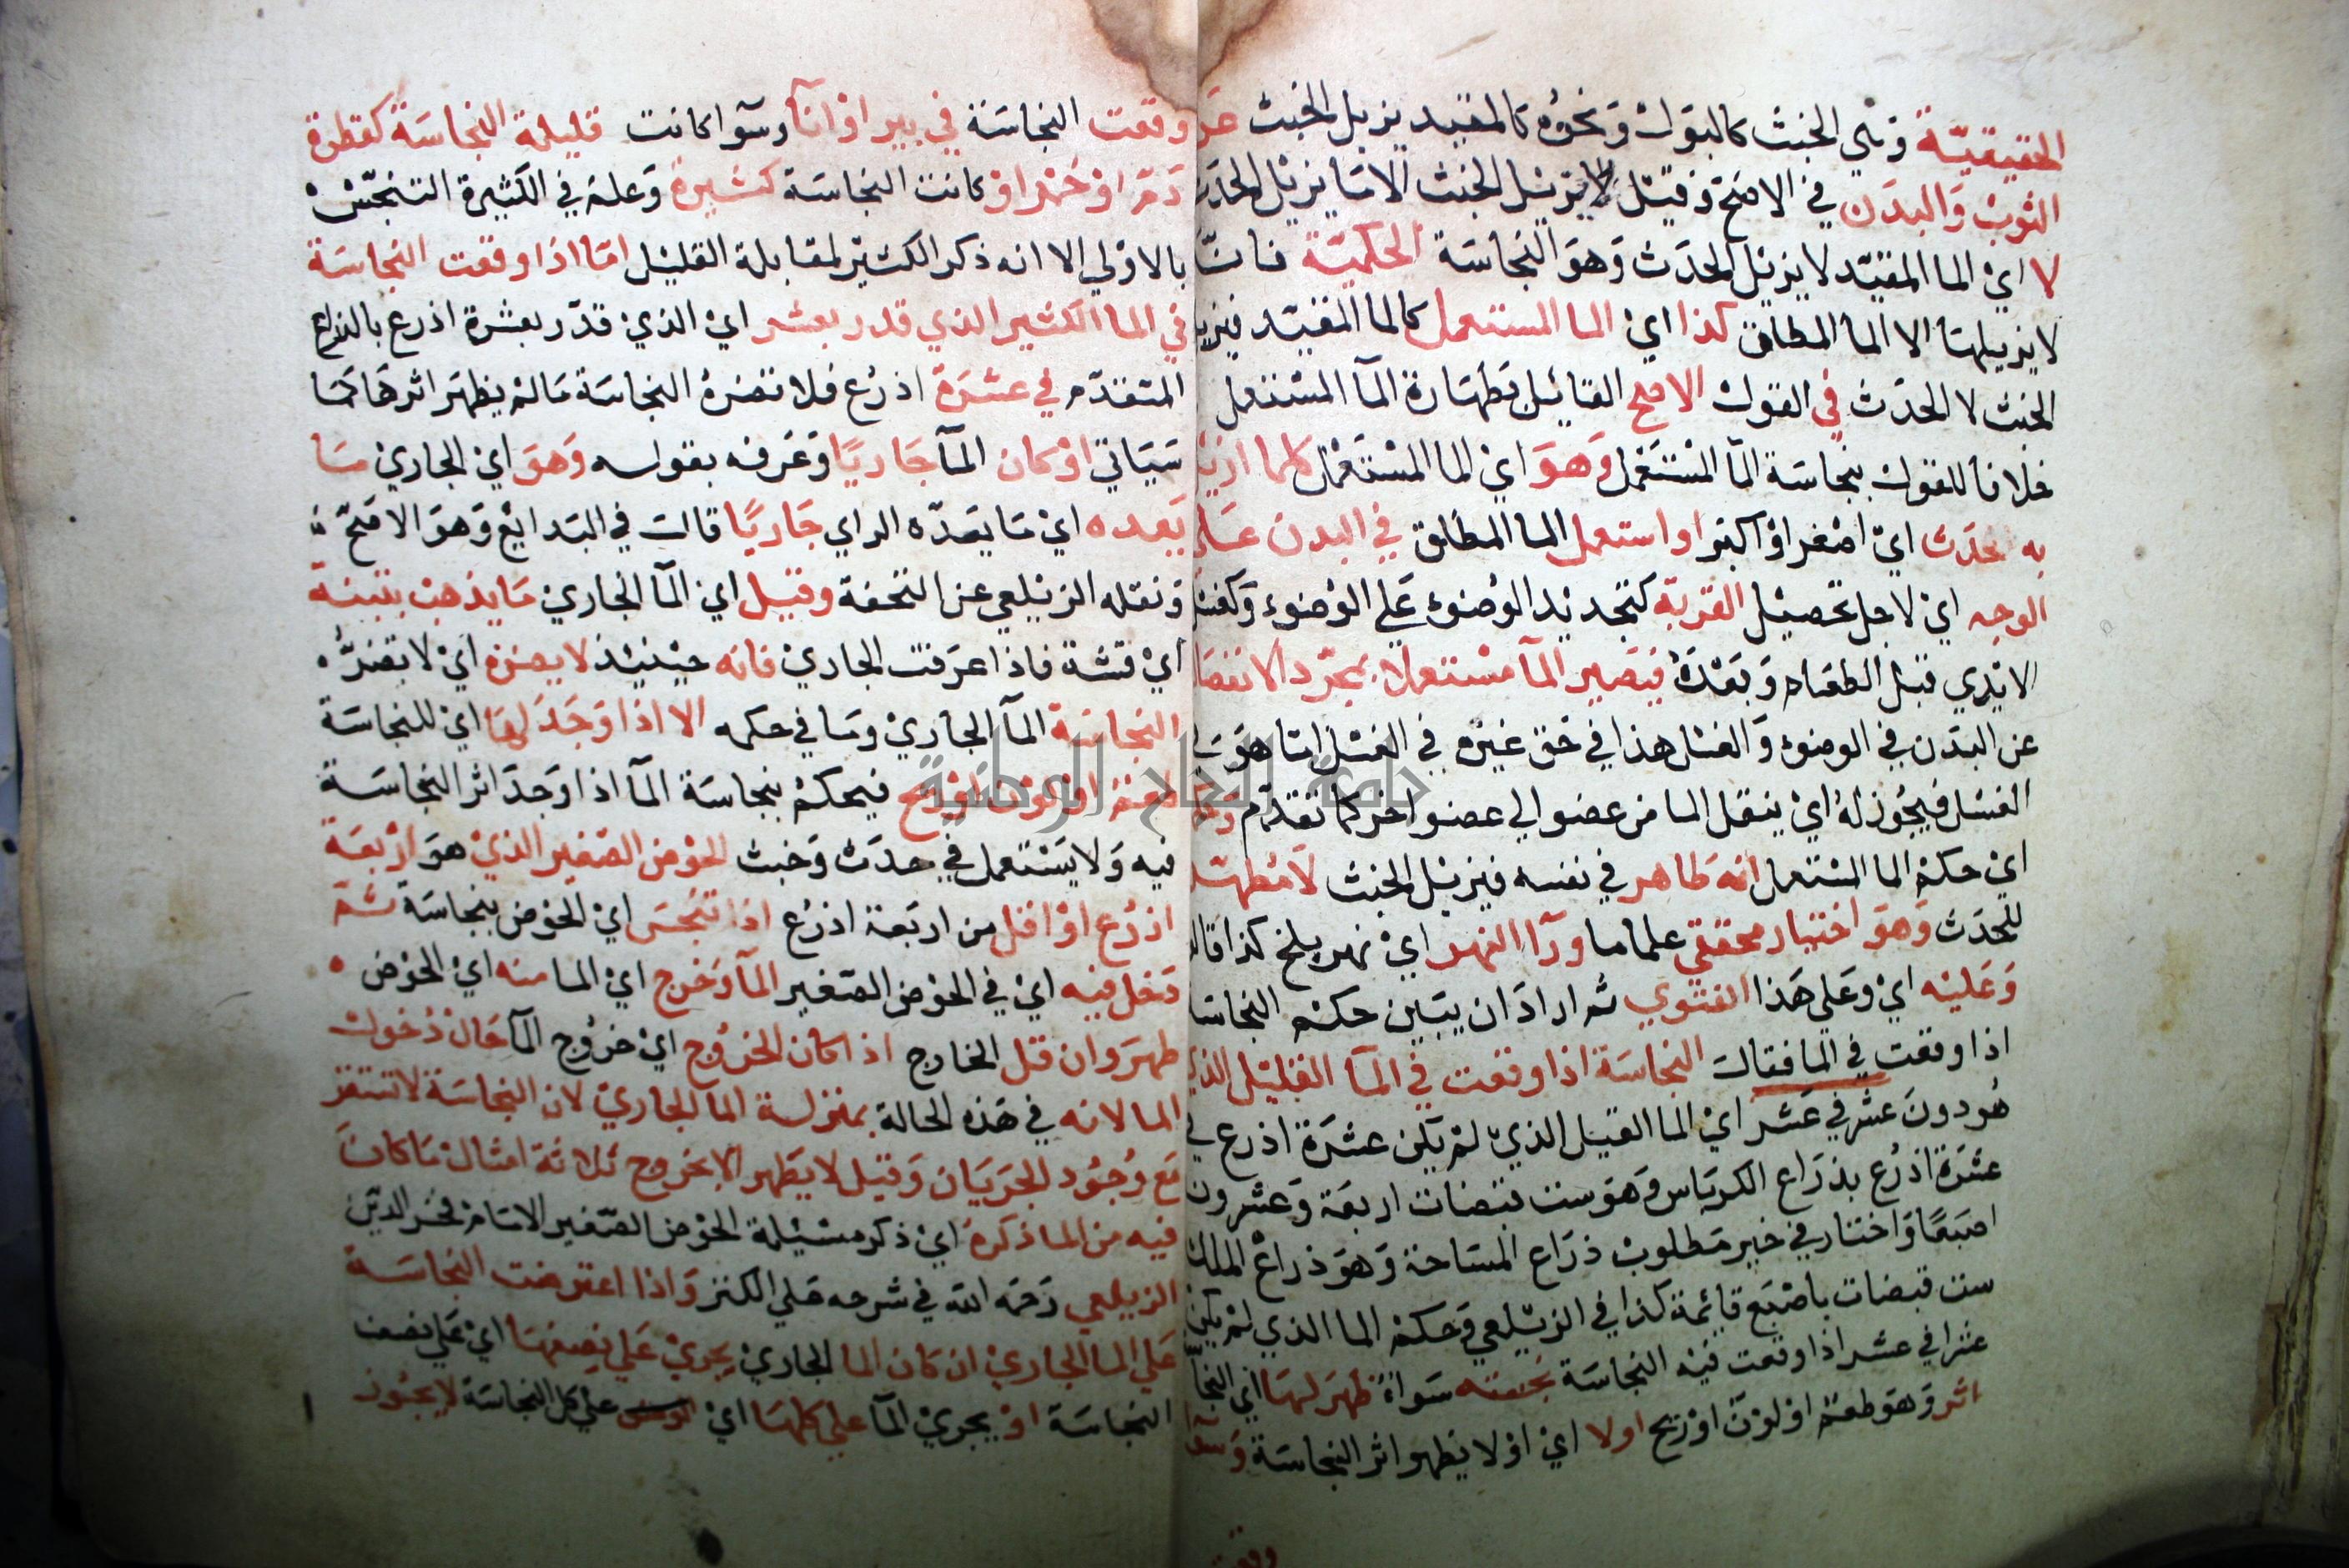 الحقيقيّة وهي الخبث كالبول ونحوه فالمقيد يزيل الخبث عن
الثوب والبدن في الاصح وقيل لا يزيل الخبث الا ما يزيل الحدث
لا اي الما المقيد لا يزيل الحدث وهو النجاسة الحكمية فانها
لا يزيلها الا الما المطلق كذا اي الما المستعمل كالما المقيد فيزيل
الخبث لا الحدث في القول الاصح القائل بطهارة المآ المستعمل
خلافا للقول بنجاسة المآ المستعمل وهو اي الما المستعمل كلما ازيل
به الحدث اي اصغر او اكبر او استعمل الما المطلق في البدن على
الوجه اي لاجل تحصيل القربة كتجديد الوضوء على الوضوء وكغسل
الايدي قبل الطعام وبعده فيصير المآ مستعملا بمجرد الانفصال
عن البدن في الوضوء والغسل هذا في حق غيره في الغسل اما هو
الغسل فيجوز له اي ينقل الما من عضو الي عضو اخر كما تقدّم
اي حكم الما المستعمل انه طاهر في نفسه فيزيل الخبث لا مطهر
للحدث وهو اختيار محققي علما ما ورآ النهر اي نهر بلخ كذا قاله
وعليه اي وعلى هذا الفتوي ثم اراد ان يبين حكم النجاسة
اذا وقعت في الما فقال النجاسة اذا وقعت في المآ القليل الذي
هو دون عشر في عشر اي الما القيل الذي لم يكن عشرة اذرع في
عشرة اذرع بذراع الكرباس وهو ست قبضات اربعة وعشرون
اصبعًا واختار في خير مطلوب ذراع المساحة وهو ذراع الملك
ست قبضات باصبع قائمة كذا في الزيلعي وحكم الما الذي لم يكن
عشرا في عشر اذا وقعت فيه النجاسة نجسته سواء ظهر لها اي النجا
اثر وهو طعم او لون او ريح اولا اي او لا يظهر اثر النجاسة وسوآ
وقعت
وقعت النجاسة في بير او انآ وسوآ كانت قليلة النجاسة كقطرة
دم او خمر او كانت النجاسة كثيرة وعلم في الكثيرة التنجس
بالاولي الا انه ذكر الكثير لمقابلة القليل اما اذا وقعت النجاسة
في الما الكثير الذي قدر بعشر اي الذي قدّر بعشرة اذرع بالذراع
المتقدّم في عشرة اذرُع فلا تضره النجاسة مالم يظهر اثرها كما
سياتي او كان المآ جاريًا وعرفه بقوله وهو اي الجاري ما
يعده اي ما يعدّه الراي جاريًا قال في البدايع وهو الاصحّ
ونقله الزيلعي عن التحفة وقيل اي المآ الجاري ما يذهب بتبنة
اي قشة فاذا عرفت الجاري فانه حينئذ لا يضره اي لا يضرُّه
النجاسة المآ الجاري وما في حكمه الا اذا وجد لها اي للنجاسة
طعم او لون او ريح فيحكم بنجاسة المآ اذا وجد اثر النجاسة
فيه ولا يستعمل في حدث وخبث الحوض الصغير الذي هو اربعة
اذرُع او اقل من اربعة اذرُع اذا تنجس اي الحوض بنجاسة ثم
دخل فيه اي في الحوض الصغير المآ وخرج اي الما منه اي الحوض
طهر وان قل الخارج اذا كان الخروج اي خروج المآ حال دخول
الما لانه في هذه الحالة بمنزلة الما الجاري لان النجاسة لا تستقر
مع وجود الجريان وقيل لا يطهر الا بخروج ثلاثة امثال ما كان
فيه من الما ذكره اي ذكر مسئلة الحوض الصغير الامام فخر الدين
الزيلعي رحمه الله في شرحه على الكنز واذا اعترضت النجاسة
على الما الجاري ان كان الما الجاري يجري على نصفها اي على نصف
النجاسة او يجري المآ على كلها اي على كل النجاسة لا يجوز